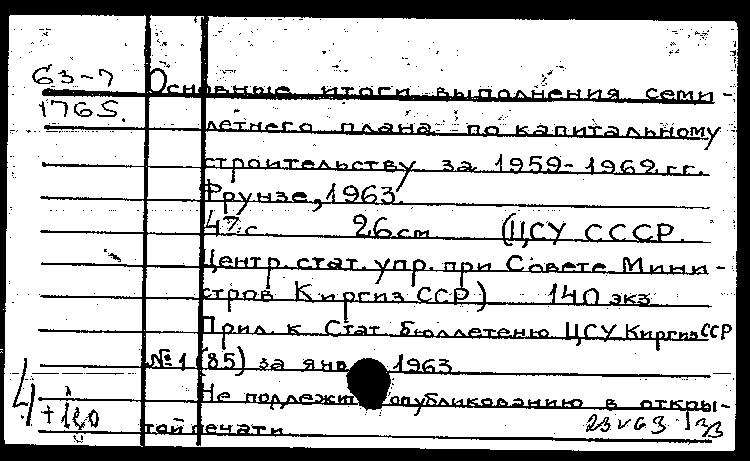 63-7 Основные итоги выполнения семи-
1765. летнего плана по капитальному
строительству за 1959-1962 гг.
Фрунзе, 1963.
47 с 26 см (ЦСУ СССР.
Центр. стат. упр. при Совете Мини-
стров Киргиз ССР) 140 экз
Прил. к Стат. бюллетеню ЦСУ Киргиз ССР
№ 1 (85) за янв 1963
Не подлежит опубликованию в откры-
той печати